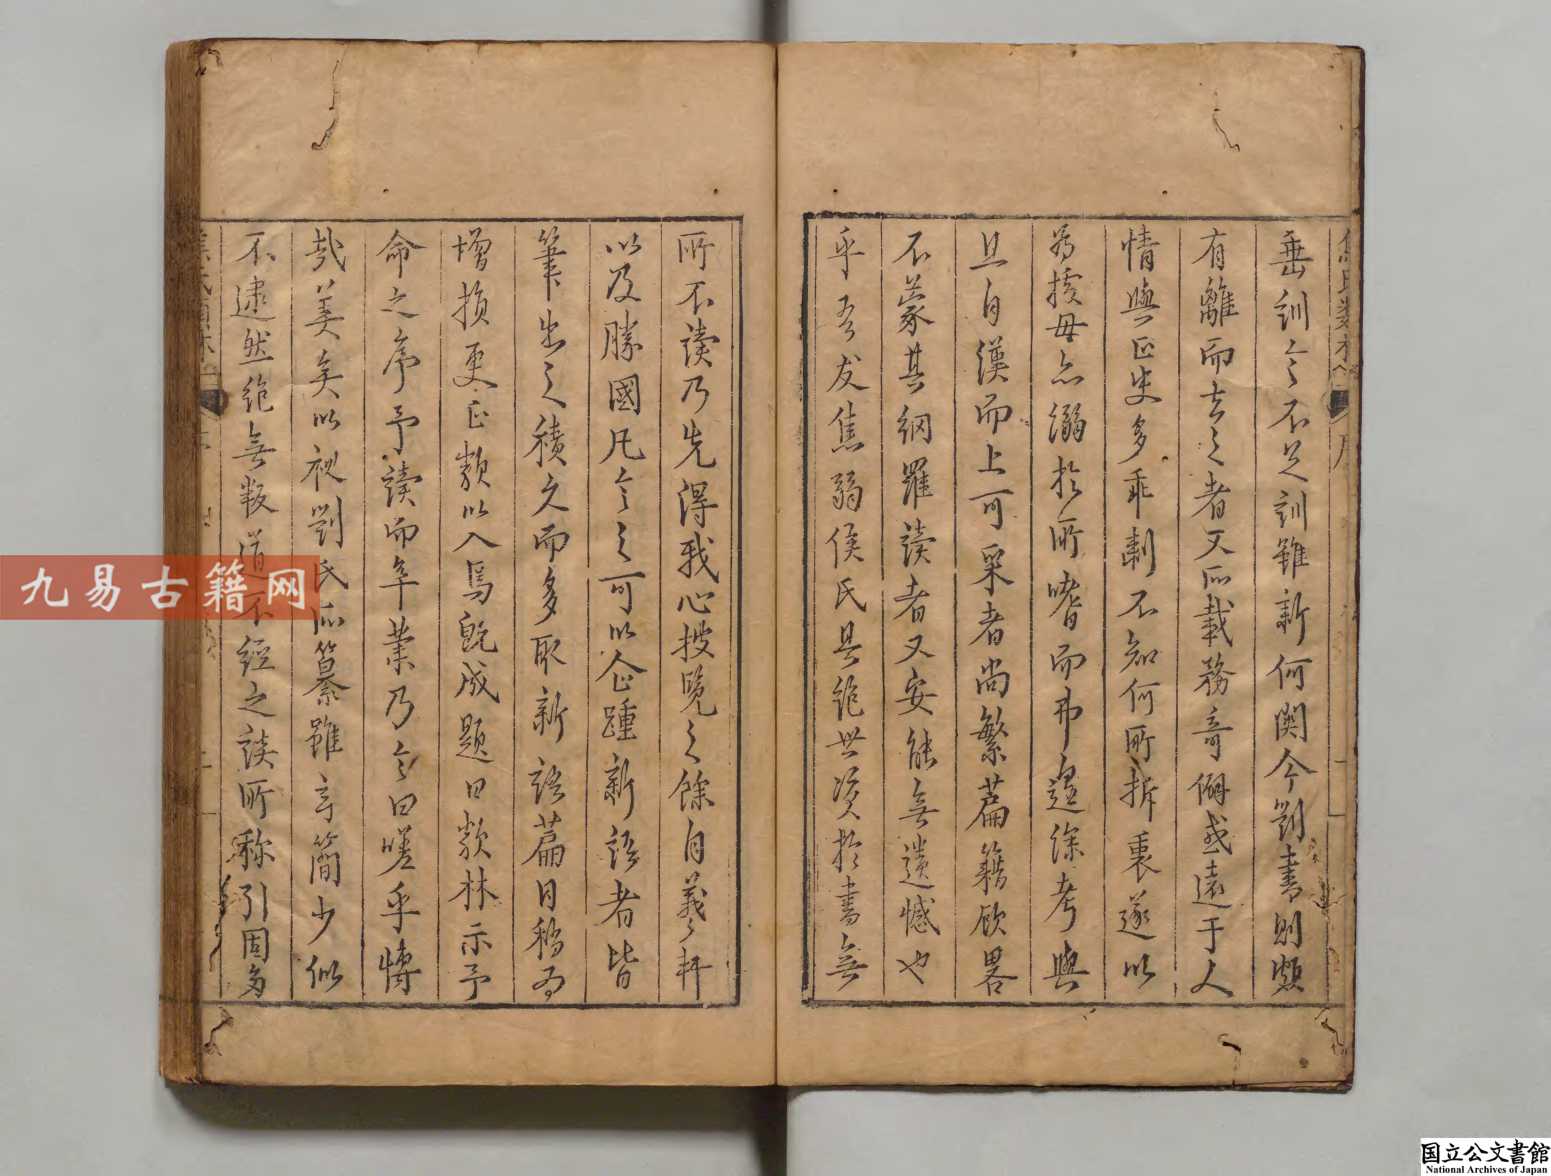 焦氏類林 序
垂訓今不足訓雖新何闕今劉書則頗
有離而去之者又所載務奇僻或遠于人
情與正史多乖剌不知何所折衷遂以
為援毋亦溺於所嗜而弗遑深考與
且自漢而上可采者尚繁篇籍顧畧
不蒙其網羅讀者又安能無遺憾也
乎吾友焦弱侯氏具絕世資於書無
所不讀乃先得我心披覽之餘自羲軒
以及勝國凡言之可以企踵新語者皆
筆出之積久而多取新語篇目稍為
增損更正類以入焉既成題曰類林示予
命之序予讀而卒業乃言曰嗟乎博
哉美矣以視劉氏所纂雖言簡少似
不逮然絕無叛道不經之談所稱引固多
九易古籍网
国立公文書館
National Archives of Japan